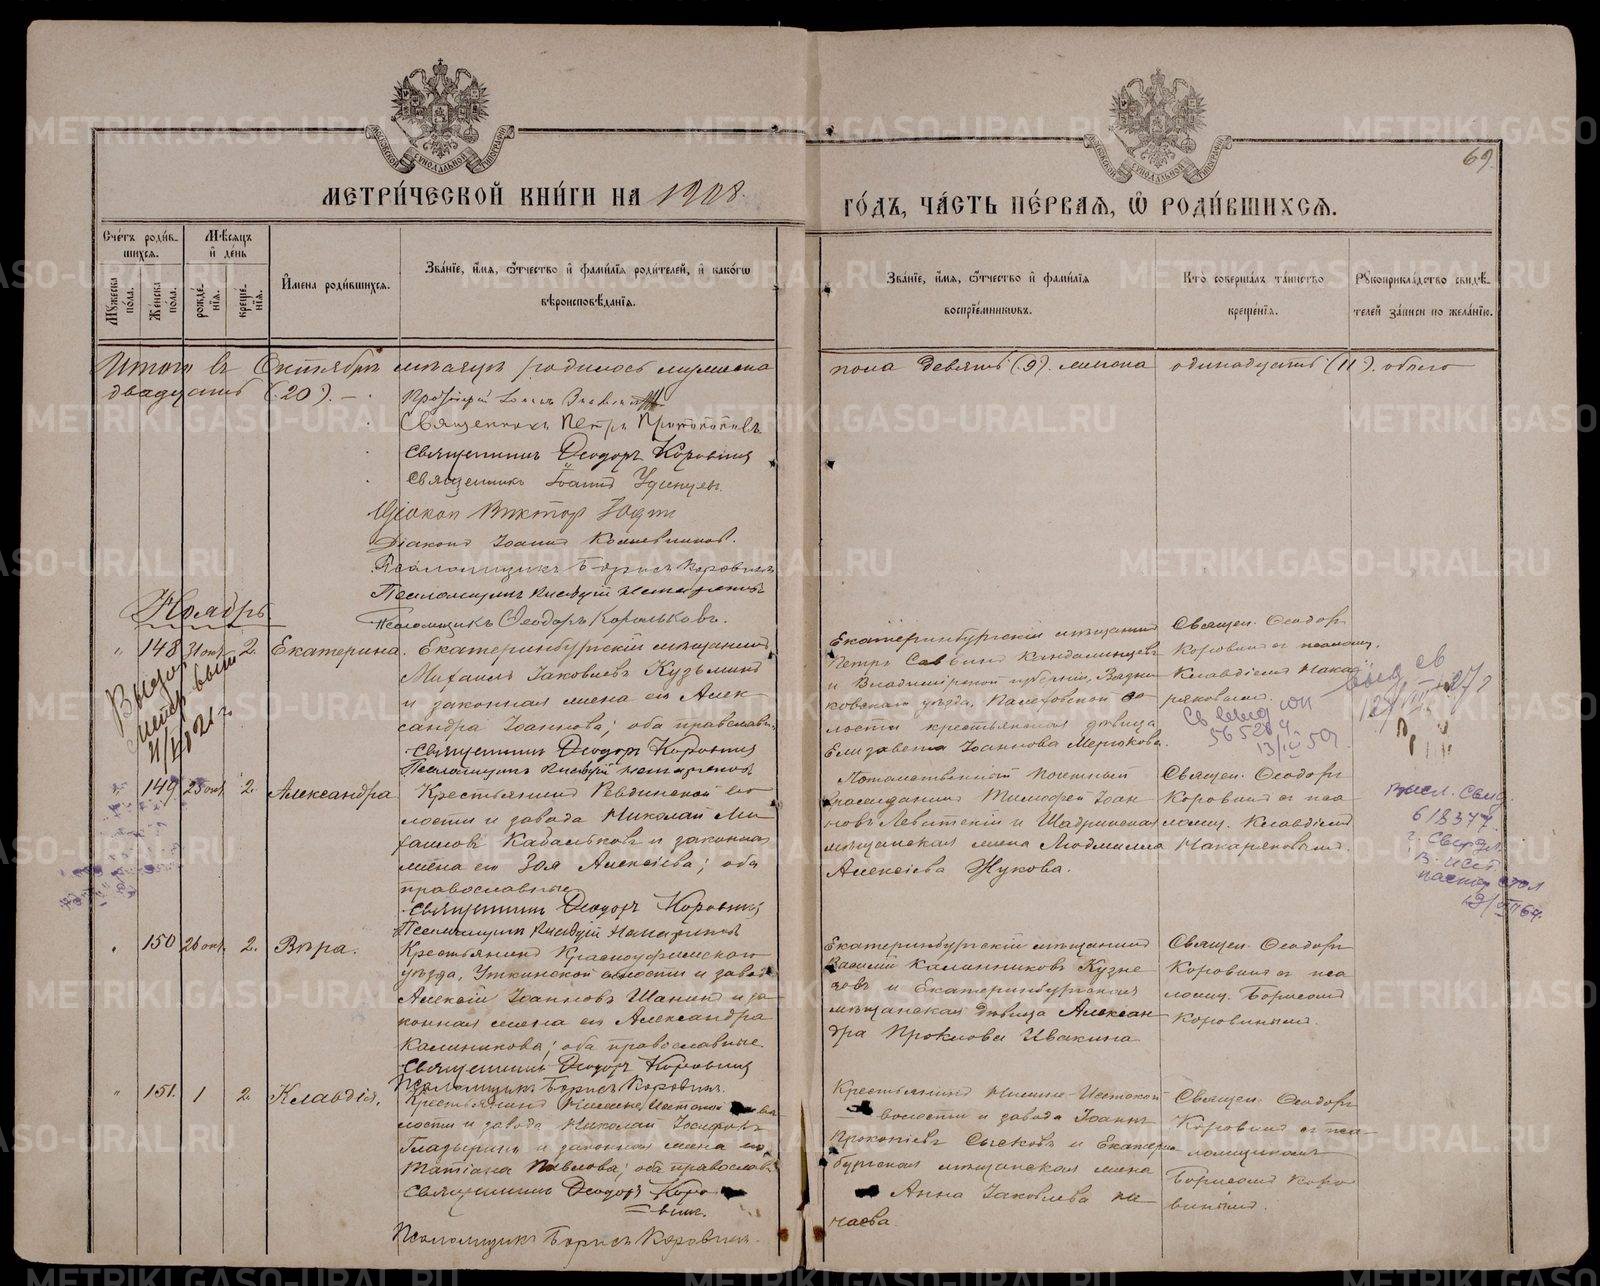 МЕТРИ́ЧЕСКОЙ КНИ́ГИ НА 1908
ГО́ДЪ, ЧА́СТЬ ПЕ́РВАЯ, Ѡ РОДИ́ВШИХСЯ.
69.
Сче́тъ роди́в-
шихся.
Мѣ́сяцъ
и́ де́нь
Мꙋжеска
пола.
Же́нска
пола.
рожде́-
нія.
креще́-
нія.
И҆мена роди́вшихся.
Зва́нїе, и҆́мя, ѻ҆́тчество и҆ фами́лїя роди́телей, и҆ како́гѡ
вѣроисповѣ́данїя.
Зва́нїе, и҆́мя, ѻ҆́тчество и҆ фами́лїя
воспрїе́мниковъ.
Кто̀ соверша́лъ та́инство
креще́нїя.
Рꙋкоприкла́дство свидѣ́-
телей за́писи по жела́нїю.
Итого въ Октябрѣ мѣсяцѣ родилось мужеска
пола девять (9). женска одинадцать (11). обоего
двадцать (20).
Протоіерей
Священникъ Петръ Протопоповъ
Священникъ Ѳеодоръ Коровинъ
Священникъ Іоаннъ Удинцевъ.
Діаконъ Викторъ Юдинъ
Діаконъ Іоаннъ
Псаломщикъ Борисъ Коровинъ
Псаломщикъ Клавдій Макаряковъ
Псаломщикъ Ѳеодоръ Корольковъ.
Ноябрь.
148 31 окт. 2. Екатерина.
Екатеринбургскій мѣщанинъ
Михаилъ Іаковлевъ Кузьминъ
и законная жена его Алек-
сандра Іоаннова; оба православн.
Священникъ Ѳеодоръ Коровинъ
Псаломщикъ Клавдій Макаряковъ
Екатеринбургскій мѣщанинъ
Петръ Саввинъ Кандалинцевъ
и Владимірской губерніи, Вязни-
ковскаго уѣзда, Палеховской во-
лости крестьянская дѣвица
Елизавета Іоаннова Мерюкова.
Священ. Ѳеодоръ
Коровинъ съ псаломщ.
Клавдіемъ Мака-
ряковымъ.
149 25 окт. 2. Александра
Крестьянинъ Ревдинской во-
лости и завода Николай Ми-
хаиловъ Кабальковъ и законная
жена его Зоя Алексіева; оба
православные
Священникъ Ѳеодоръ Коровинъ
Псаломщикъ Клавдій Макаряковъ
Потомственный Почетный
гражданинъ Тимофей Іоан-
новъ Левитскій и Шадринская
мѣщанская жена Людмилла
Алексіева Жукова.
Священ. Ѳеодоръ
Коровинъ съ пса-
ломщ. Клавдіемъ
Макаряковымъ.
618377
150 26 окт. 2. Вѣра.
Крестьянинъ Красноуфимскаго
уѣзда, Уткинской волости и завода
Алексій Іоанновъ Шанинъ и за-
конная жена его Александра
Калиникова; оба православные
Священникъ Ѳеодоръ Коровинъ
Псаломщикъ Борисъ Коровинъ.
Екатеринбургскій мѣщанинъ
Василій Калинниковъ Кузне-
цовъ и Екатеринбургская
мѣщанская дѣвица Алексан-
дра Проклова Ивакина
Священ. Ѳеодоръ
Коровинъ съ пса-
ломщ. Борисомъ
Коровинымъ.
151. 1 2. Клавдія.
Крестьянинъ Нижне-Исетской во-
лости и завода Николай Іосифовъ
Гладыринъ и законная жена его
Татіана Павлова; оба православ.
Священникъ Ѳеодоръ Коро-
винъ.
Псаломщикъ Борисъ Коровинъ.
Крестьянинъ Нижне-Исетской
волости и завода Іоаннъ
Прокопіевъ Сысковъ и Екатерин-
бургская мѣщанская жена
Анна Іаковлева
Священ. Ѳеодоръ
Коровинъ съ пса-
ломщикомъ
Борисомъ Коро-
винымъ.
METRIKI.GASO-URAL.RU